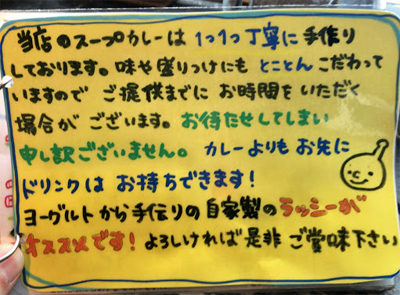 当店のスープカレーは 1つ1つ丁寧に 手作り
しております。味や盛りつけにも とことん こだわって
いますので ご提供までに お時間を いただく
場合が ございます。お待たせしてしまい
申し訳ございません。 カレーよりも お先に
ドリンクは お持ちできます!
ヨーグルトから手伝りの自家製のラッシーが
オススメです! よろしければ是非 ご賞味下さい